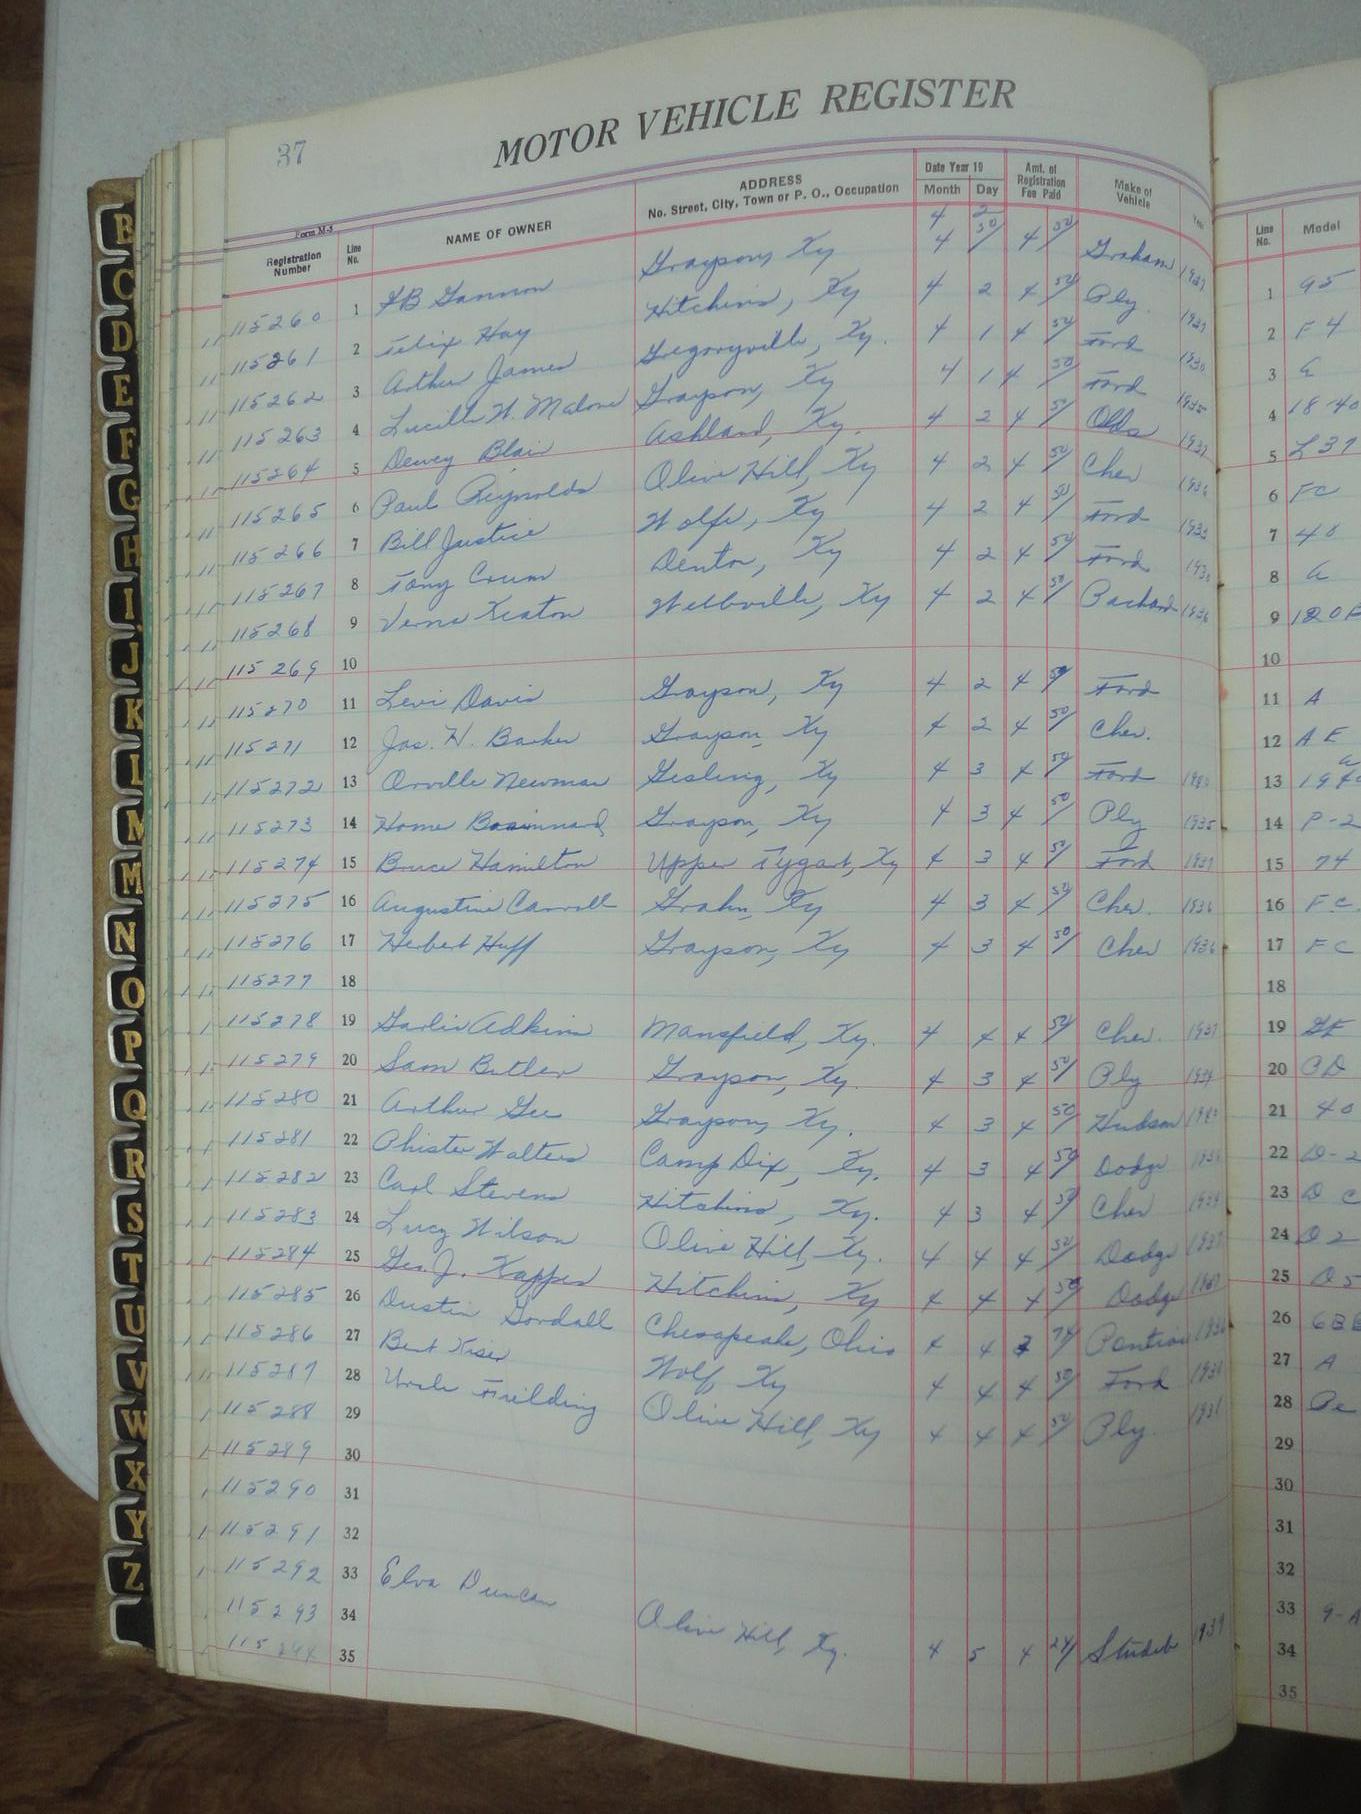 37
MOTOR VEHICLE REGISTER
Form M-5
Registration Number Line No. NAME OF OWNER ADDRESS No. Street, City, Town or P. O., Occupation Date Year 19 Month Day Amt. of Registration Fee Paid Make of Vehicle Year Line No. Model
4 2
115260 1 Gannon Grayson, Ky 4 30 4 50 Graham 1937 1 95
115261 2 Felix Hay Hitchins, Ky 4 2 4 50 Ply 1937 2 F 4
115262 3 Arthur James Gregoryville, Ky. 4 1 4 50 Ford 1930 3
115263 4 Lucille H. Malone Grayson, Ky 4 1 4 50 Ford 1935 4 18 40
115264 5 Dewey Blair Ashland, Ky. 4 2 4 50 Olds 1937 5 L 37
115265 6 Paul Reynolds Olive Hill, Ky 4 2 4 50 Chev 1936 6 FC
115266 7 Bill Justice Wolfe, Ky 4 2 4 50 Ford 1933 7 40
115267 8 Tony Crum Denton, Ky 4 2 4 50 Ford 1930 8 a
115268 9 Verne Keaton Webbville, Ky 4 2 4 50 Packard 1936 9 120
115269 10 10
115270 11 Levi Davis Grayson, Ky 4 2 4 50 Ford 11 A
115271 12 Jas. H. Barker Grayson, Ky 4 2 4 50 Chev. 12 A E
115272 13 Orville Newman Gesling, Ky 4 3 4 50 Ford 13
115273 14 Grayson, Ky 4 3 4 50 Ply 1935 14 P-2
115274 15 Bruce Hamilton Upper Tygart, Ky 4 3 4 50 Ford 1937 15 74
115275 16 Augustine Carroll Grahn, Ky 4 3 4 50 Chev. 1936 16 F C
115276 17 Herbert Huff Grayson, Ky 4 3 4 50 Chev 1936 17 F C
115277 18 18
115278 19 Adkins Mansfield, Ky. 4 4 4 50 Chev. 1937 19
115279 20 Sam Butler Grayson, Ky. 4 3 4 50 Ply 20 CD
115280 21 Arthur Gee Grayson, Ky. 4 3 4 50 Hudson 21 40
115281 22 Phister Walters Camp Dix, Ky. 4 3 4 50 Dodge 22 D-2
115282 23 Carl Stevens Hitchins, Ky. 4 3 4 50 Chev 23 D C
115283 24 Lucy Wilson Olive Hill, Ky. 4 4 4 50 Dodge 24 D 2
115284 25 Geo. J. Kappes Hitchins, Ky 4 4 4 50 Dodge 25 D 5
115285 26 Dustin Gordall Chesapeake, Ohio 4 4 3 74 Pontiac 1936 26 6B
115286 27 Bert Kiser Wolf, Ky 4 4 4 50 Ford 27 A
115287 28 Fielding Olive Hill, Ky 4 4 4 50 Ply. 28
115288 29 29
115289 30 30
115290 31 31
115291 32 32
115292 33 Elva Duncan Olive Hill, Ky. 4 5 4 24 Studeb 1939 33 9-A
115293 34 34
115294 35 35
B
C
D
E
F
G
H
I
J
K
L
M
M
N
O
P
Q
R
S
T
U
V
W
X
Y
Z